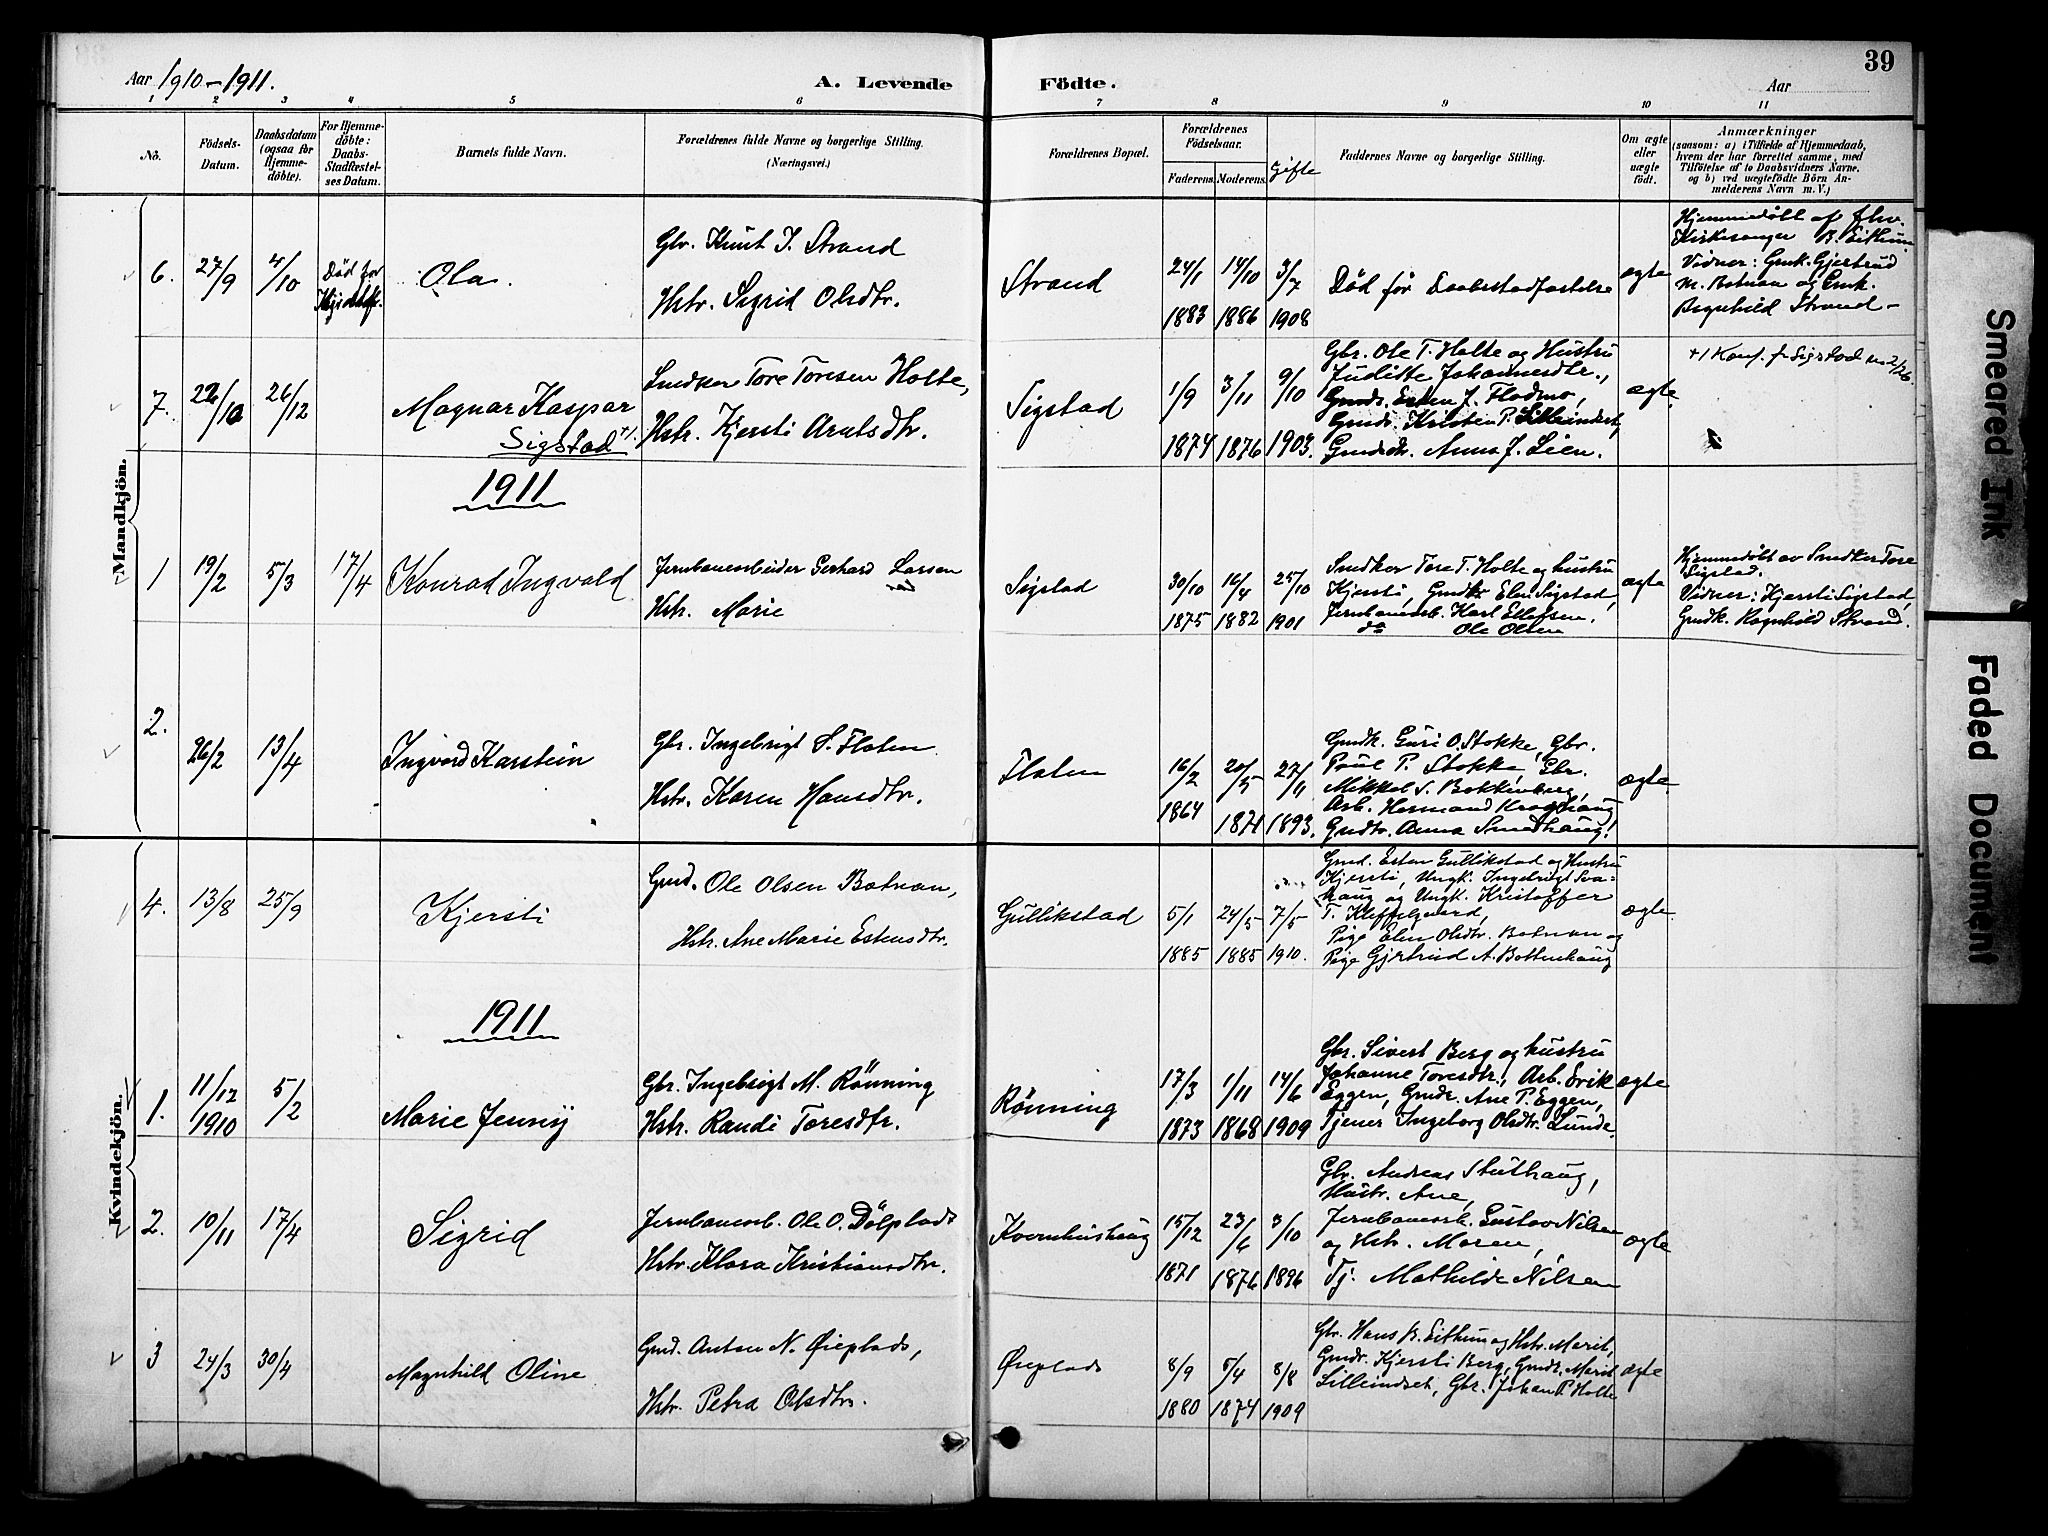 39
Aar 1910–1911.
A. Levende Födte.
Aar
1 2 3 4 5 6 7 8 9 10 11
No.
Födsels-Datum.
Daabsdatum (ogsaa for Hjemme-döbte).
For Hjemme-döbte: Daabs-Stadfæstel-ses Datum.
Barnets fulde Navn.
Forældrenes fulde Navne og borgerlige Stilling. (Næringsvei.)
Forældrenes Bopæl.
Forældrenes Födselsaar.
Faderens. Moderens.
Gifte
Faddernes Navne og borgerlige Stilling.
Om ægte eller uægte födt.
Anmærkninger
(saasom: a) i Tilfælde af Hjemmedaab, hvem der har forrettet samme, med Tilföielse af to Daabsvidners Navne. og b) ved uægtefödte Börn An-melderens Navn m. V.)
Mandkjön.
6. 27/9 4/10 Død før Ola.
Gbr. Knut J. Strand
Hstr. Sigrid Olsdtr.
Strand
24/1 1883 14/10 1886 3/7 1908
Død før Daabsstadfæstelse
ægte
Hjemmedøbt af fhv.
Kirkesanger B. Eithun.
Vidner: Gmk. Gjertrud
M. Botnan og Gmk.
Ragnhild Strand
7. 22/10 26/12 Magnar Kaspar
Sigstad +1.
Smdker Tore Toresen Holte,
Hstr. Kjersti Arntsdtr.
Sigstad
1/9 1874 3/11 1876 9/10 1903.
Gbr. Ole T. Holte og Hustru
Juditte Johannesdtr.,
Gmds. Esten J. Flodmo,
Gmds. Karsten P. Lilleindset,
Gmdsdtr. Anna J. Lien.
ægte.
+1 Konf. f. Sigstad
1911
1 19/2 5/3 17/4 Konrad Ingvald
Jernbanearbeider Gerhard Larsen
Hst. Marie
Sigstad
30/10 1875 16/4 1882 25/10 1901
Smdker Tore T. Holte og hustru
Kjersti, Gmdk Elen Sigstad,
Jernbanearb. Karl Ellefsen.
do Ole Olsen
ægte
Hjemmedøbt av Smdker Tore
Sigstad.
Vidner: Kjersti Sigstad,
Gmdk. Ragnhild Strand.
2. 26/2 13/4 Ingvard Karstein
Gbr. Ingebrigt S. Floten
Hstr. Karen Hansdtr.
Floten
16/2 1864 20/5 1871 27/11 1893.
Gmdk. Guri O. Stokke, Gbr.
Poul P. Stokke, Gbr.
Mikkel S. Bakkenberg,
Arb. Hermand Kroghaug
Gmdtr. Anna Smedhaug.
ægte.
Kvindekjön.
4. 13/8 25/9 Kjersti
Gmd. Ole Olsen Botnan,
Hstr. Ane Marie Estensdtr.
Gullikstad
5/1 1885 24/5 1885 7/5 1910.
Gmd. Esten Gullikstad og Hustru
Kjersti, Ungk. Ingebrigt Sva-
haug og Ungk. Kristoffer
T. Kleffelgaard,
Pige Elen Olsdtr. Botnan og
Pige Gjertrud A. Bottenhaug
ægte.
1911
1. 11/12 1910 5/2 Marie Jenny
Gbr. Ingebrigt M. Rönning
Hstr. Randi Toresdtr.
Rönning
17/3 1873 1/11 1868 14/6 1909
Gbr. Sivert Berg og hustru
Johanne Toresdtr, Arb. Erik
Eggen, Gmdr. Ane P. Eggen,
Tjener Ingeborg Olsdtr. Lunde.
ægte
2. 10/11 17/4 Sigrid
Jernbanearb. Ole O. Dölplads
Hstr. Klara Kristiansdtr.
Kvernhushaug
15/12 1871 23/6 1876 3/10 1896
Gbr. Andreas Stuthaug,
Hustr. Ane,
Jernbanearb. Gustav Nilsen
og Hstr. Maren,
Tj. Mathilde Nilsen
ægte
3 24/3 30/4 Magnhild Oline
Gmd. Anton N. Øieplads,
Hstr. Petra Olsdtr.
Øieplads
8/9 1880 5/4 1874 8/8 1909
Gbr. Hans B. Eithun og Hstr. Marit,
Gmdr. Kjersti Berg, Gmdr. Marit
Lilleindset, Gbr. Johan P. Holte
ægte
Smeared Ink
Faded Document